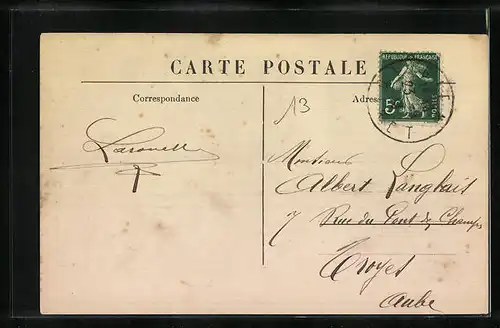 CARTE POSTALE
REPUBLIQUE FRANÇAISE
5c
POSTES
Correspondance
13
Adresse
Monsieur
Albert Langlais
7 Rue du Pont des Champs
Troyes
Aube